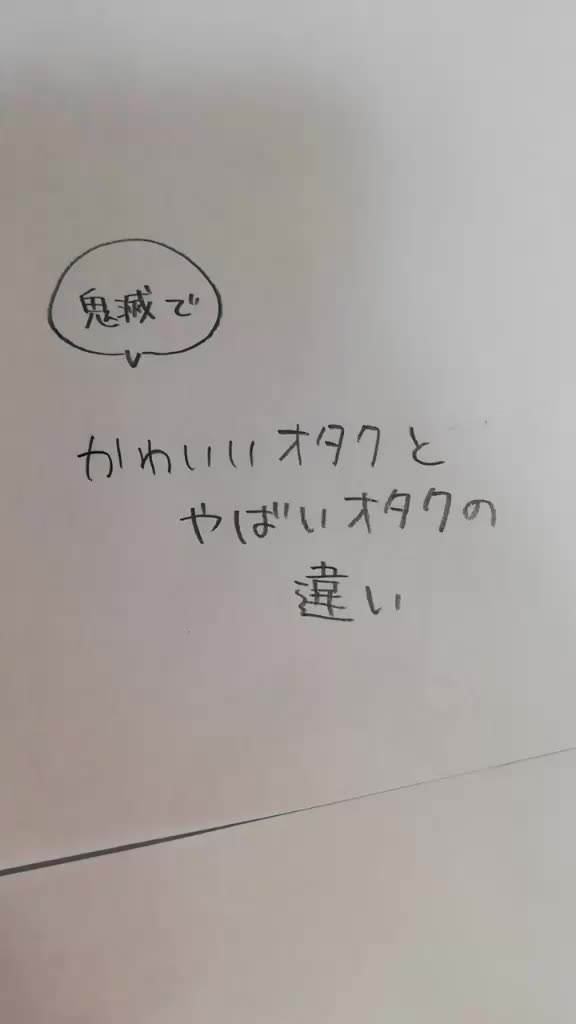 鬼滅で
かわいいオタクと
やばいオタクの
違い